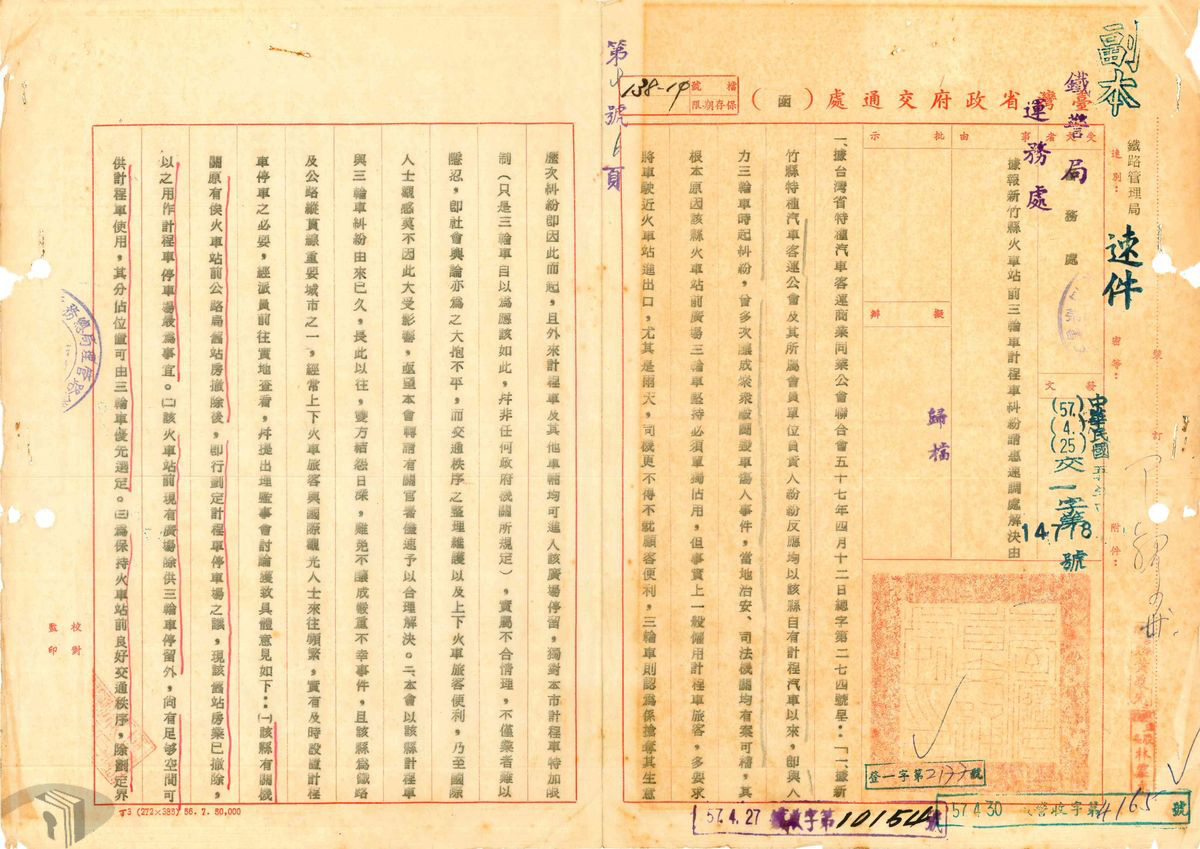 副本
鐵路管理局
速件
速別：
密等：
附件：
裝
訂
臺灣省政府交通處（函）
檔號
保存期限
138-14
第4號6頁
鐵管局
運務處
受文者
事由
據報新竹縣火車站前三輪車計程車糾紛請惠運調處解決由
批示
擬辦
歸檔
發文
中華民國
(57.)
(4.)
(25)
交一字第
14778
號
一、據台灣省特種汽車客運商業同業公會聯合會五十七年四月十二日總字第二七四號呈：「一、據新
竹縣特種汽車客運公會及其所屬會員單位負責人紛紛反應均以該縣自有計程汽車以來，即與人
力三輪車時起糾紛，曾多次釀成聚衆毆鬪毀車傷人事件，當地治安、司法機關均有案可稽，其
根本原因該縣火車站前廣場三輪車堅持必須單獨佔用，但事實上一般僱用計程車旅客，多要求
將車駛近火車站進出口，尤其是雨天，司機更不得不就顧客便利，三輪車則認為係搶奪其生意
歷次糾紛即因此而起，且外來計程車及其他車輛均可進入該廣場停留，獨對本市計程車特加限
制（只是三輪車自以為應該如此，幷非任何政府機關所規定），實屬不合情理，不僅業者難以
隱忍，即社會輿論亦為之大抱不平，而交通秩序之整理維護以及上下火車旅客便利，乃至國際
人士觀感莫不因此大受影響，亟望本會轉請有關官署儘速予以合理解決。二、本會以該縣計程車
與三輪車糾紛由來已久，長此以往，雙方結怨日深，難免不釀成嚴重不幸事件，且該縣為鐵路
及公路縱貫線重要城市之一，經常上下火車旅客與國際觀光人士來往頻繁，實有及時設置計程
車停車之必要，經派員前往實地查看，幷提出理監事會討論獲致具體意見如下：㈠該縣有關機
關原有俟火車站前公路局舊站房撤除後，即行劃定計程車停車場之議，現該舊站房業已撤除，
以之用作計程車停車場最為事宜。㈡該火車站前現有廣場除供三輪車停留外，尚有足夠空間可
供計程車使用，其分佔位置可由三輪車優先選定。㈢為保持火車站前良好交通秩序，除劃定界
校對
監印
T3 (272×383) 56. 7. 50,000
登一字第2177號
57. 4. 27 鐵收字第10154號
57. 4. 30 營收字第4165號